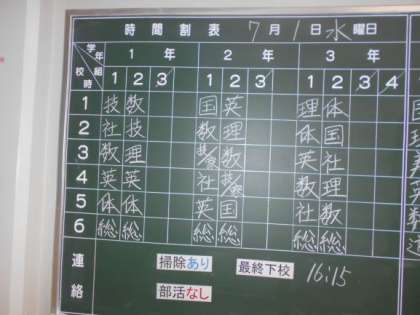 時間割表 7月1日水曜日
学年 1年 2年 3年
校時 組 1 2 3 1 2 3 1 2 3 4
1 技 数 国 英 理 体
2 社 技 数 理 体 国
3 数 理 数 英 社
4 英 英 社 数 理
5 体 体 英 国 社 数
6 総 総 総 総 総 総
連絡 掃除あり 最終下校 16:15
部活なし